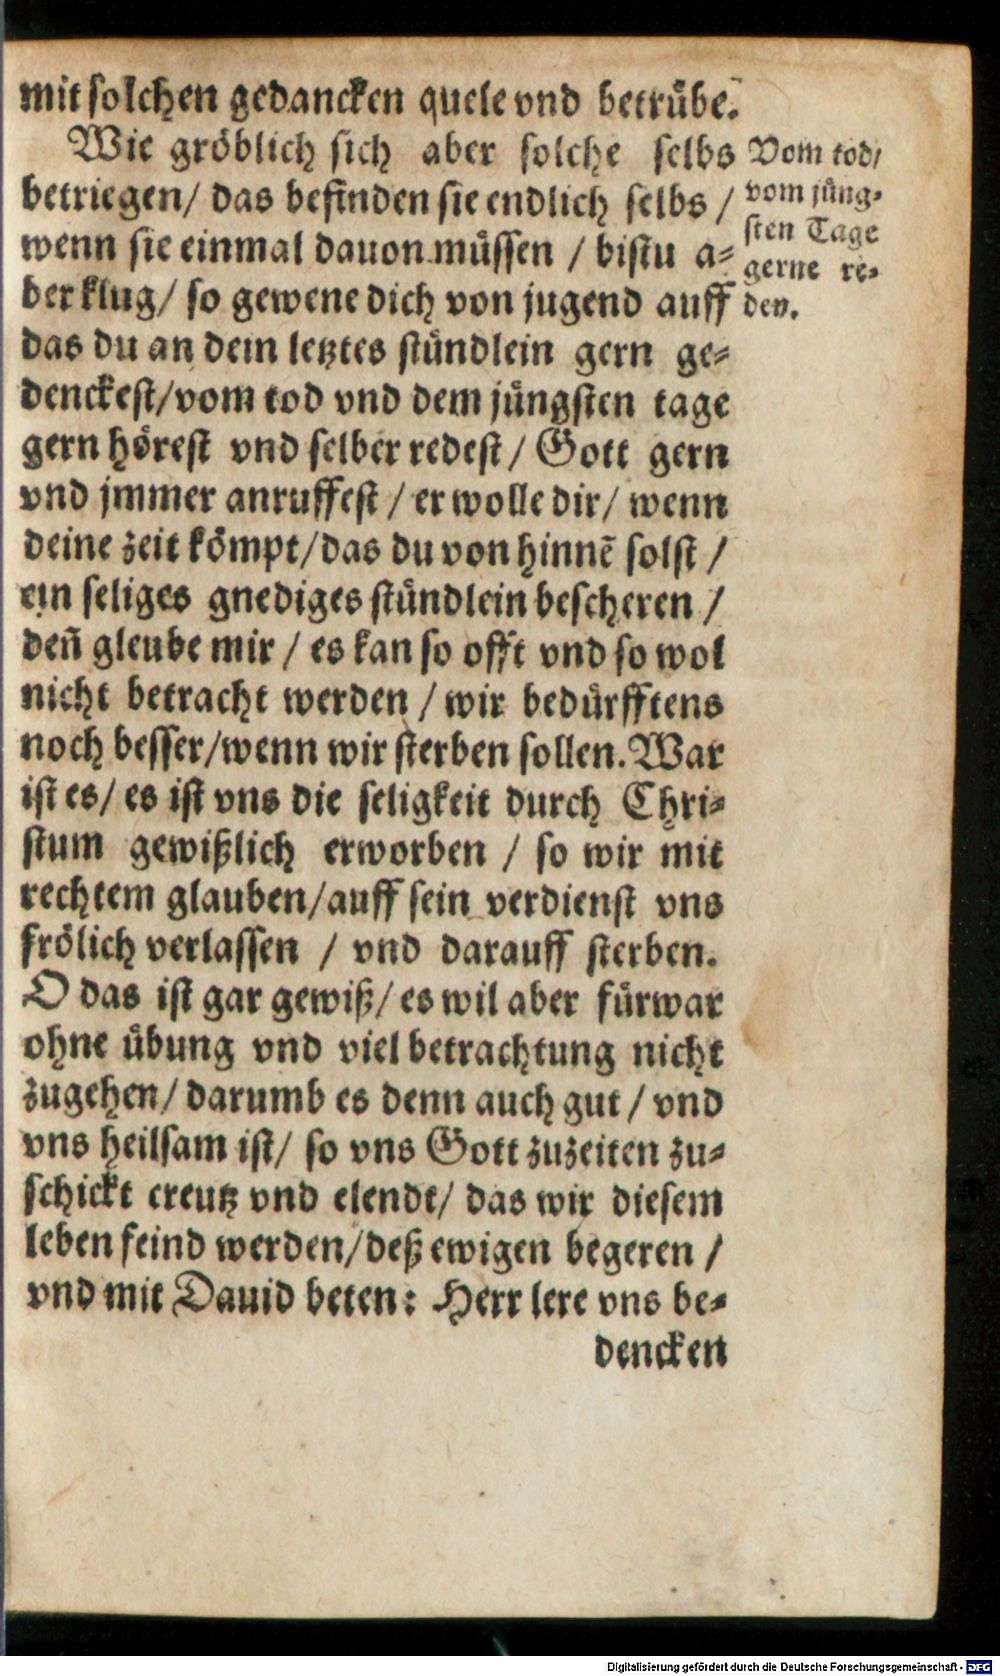 mit solchen gedancken quele vnd betrübe.
Wie gröblich sich aber solche selbs
betriegen/ das befinden sie endlich selbs /
wenn sie einmal dauon müssen / bistu a⸗
ber klug/ so gewene dich von jugend auff
das du an dein letztes stündlein gern ge⸗
denckest/vom tod vnd dem jüngsten tage
gern hörest vnd selber redest/ Gott gern
vnd jmmer anruffest / er wolle dir/ wenn
deine zeit kömpt/das du von hinnē solst /
ein seliges gnediges stündlein bescheren /
den̄ gleube mir / es kan so offt vnd so wol
nicht betracht werden / wir bedürfftens
noch besser/wenn wir sterben sollen. War
ist es/ es ist vns die seligkeit durch Chri⸗
stum gewißlich erworben / so wir mit
rechtem glauben/auff sein verdienst vns
frölich verlassen / vnd darauff sterben.
O das ist gar gewiß/ es wil aber fürwar
ohne übung vnd viel betrachtung nicht
zugehen/ darumb es denn auch gut / vnd
vns heilsam ist/ so vns Gott zuzeiten zu⸗
schickt creutz vnd elendt/ das wir diesem
leben feind werden/deß ewigen begeren /
vnd mit Dauid beten: Herr lere vns be⸗
dencken
Vom tod/
vom jüng⸗
sten Tage
gerne re⸗
den.
Digitalisierung gefördert durch die Deutsche Forschungsgemeinschaft - DFG